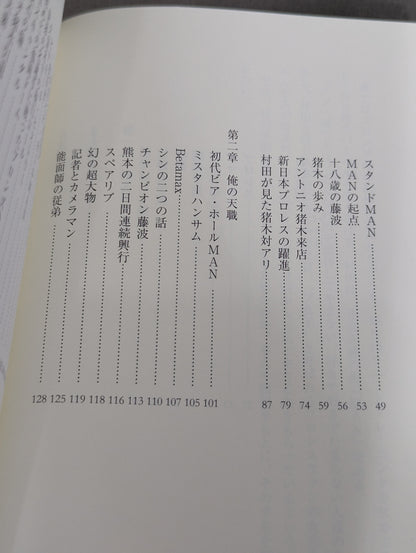 スタンドMAN 49
MANの起点 53
十八歳の藤波 56
猪木の歩み 59
アントニオ猪木来店 74
新日本プロレスの躍進 79
村田が見た猪木対アリ 87
第二章 俺の天職
初代ビア・ホールMAN 101
ミスターハンサム 105
Betamax 107
シンの二つの話 110
チャンピオン藤波 113
熊本の二日間連続興行 116
スペアリブ 118
幻の超大物 119
記者とカメラマン 125
能面師の従弟 128